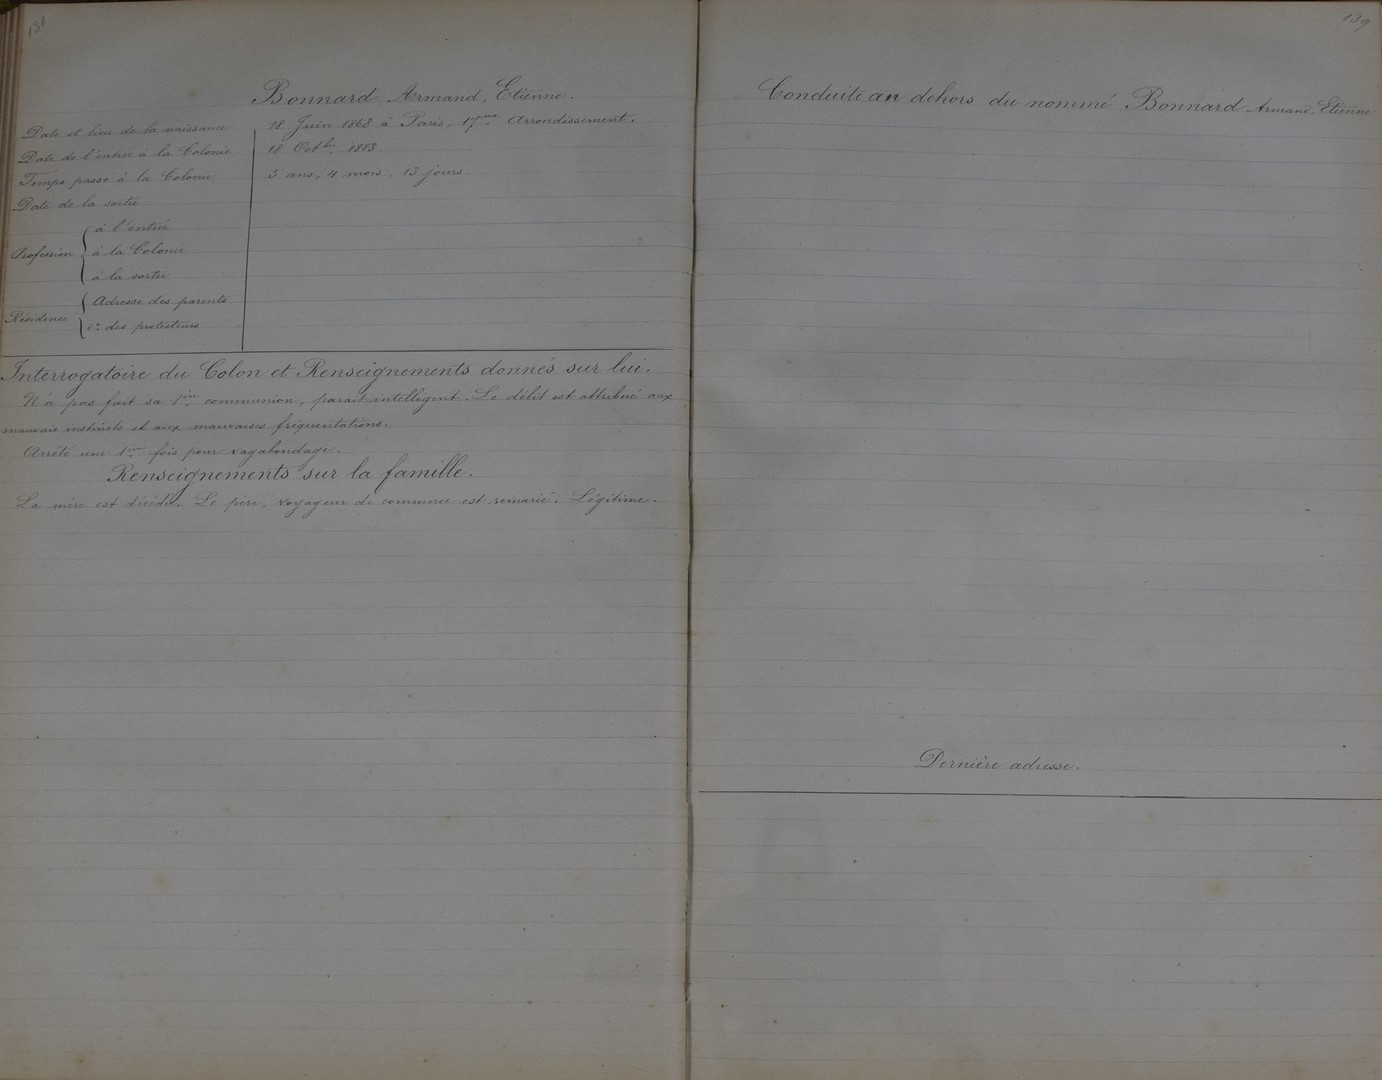 131
Bonnard, Armand, Etienne.
Date et lieu de la naissance 18 Juin 1868 à Paris, 17me Arrondissement.
Date de l'entrée à la Colonie 18 Octbre 1883
Temps passé à la Colonie 5 ans, 4 mois, 13 jours
Date de la sortie
Profession
à l'entrée
à la Colonie
à la sortie
Résidence
Adresse des parents
do des protecteurs
Interrogatoire du Colon et Renseignements donnés sur lui.
N'a pas fait sa 1ère communion, parait intellegent. Le délit est attribué aux
mauvais instincts et aux mauvaises fréquentations.
Arrêté une 1ère fois pour vagabondage.
Renseignements sur la famille.
La mère est décédée. Le père, voyageur de commerce est remarié. Légitime.
139
Conduite au dehors du nommé Bonnard Armand, Etienne
Dernière adresse.